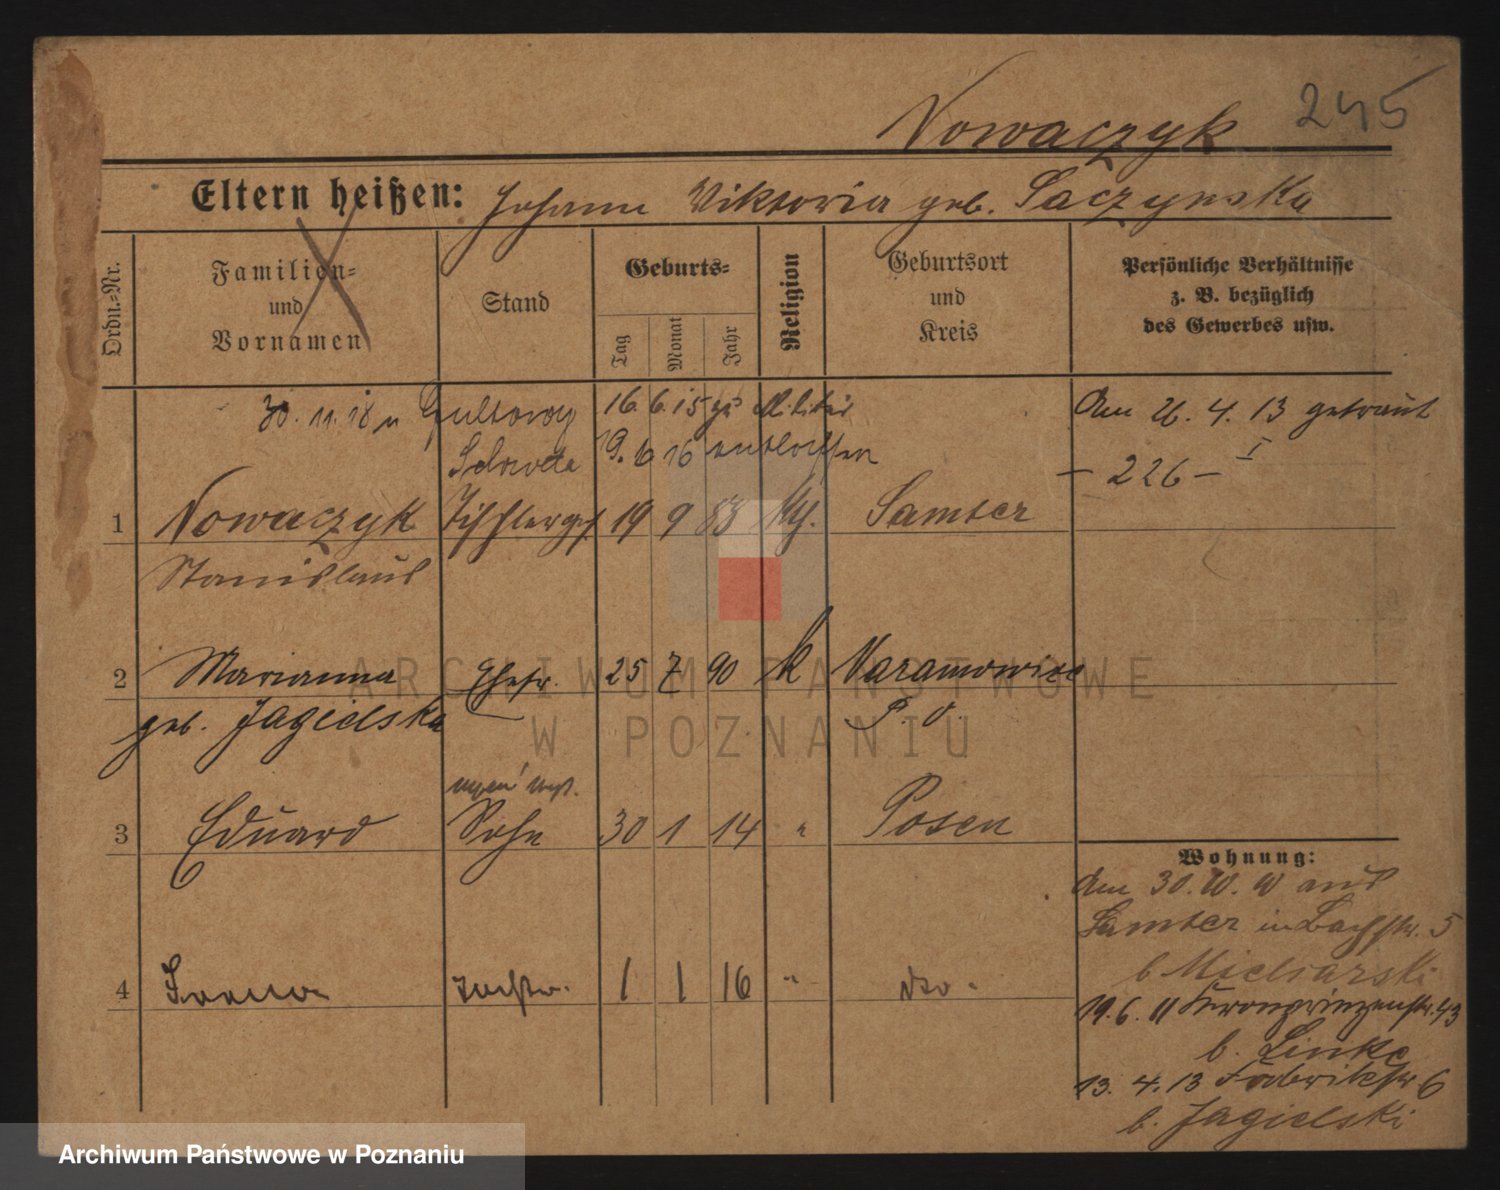 245
Nowaczyk
Eltern heißen: Johann Viktoria geb. Saczynska
Ordn.=Nr.
Familien=
und
Vornamen
Stand
Geburts=
Tag
Monat
Jahr
Religion
Geburtsort
und
Kreis
Persönliche Verhältnisse
z. B. bezüglich
des Gewerbes usw.
30. 11. 18 n Gultowy
Schroda
16. 6. 15 zu Militär
19. 6 16 entlassen
Am 26. 4. 13 getraut
- 226 - I
1 Nowaczyk Tischlerges. 19 9 88 kth. Samter
Stanislaus
2 Marianna Ehefr. 25 7 90 k Naramowice
geb. Jagielska P. O.
3 Eduard Sohn 30 1 14 " Posen
4 Tochter. 1 1 16 " dto.
Wohnung:
Am 30. aus
Samter in Bachstr. 5
b Mielcarski
19. 6. 11 Kronprinzenstr. 43
b. Linke
13. 4. 13 Fabrikstr 6
b. Jagielski
ARCHIWUM PAŃSTWOWE
W POZNANIU
Archiwum Państwowe w Poznaniu